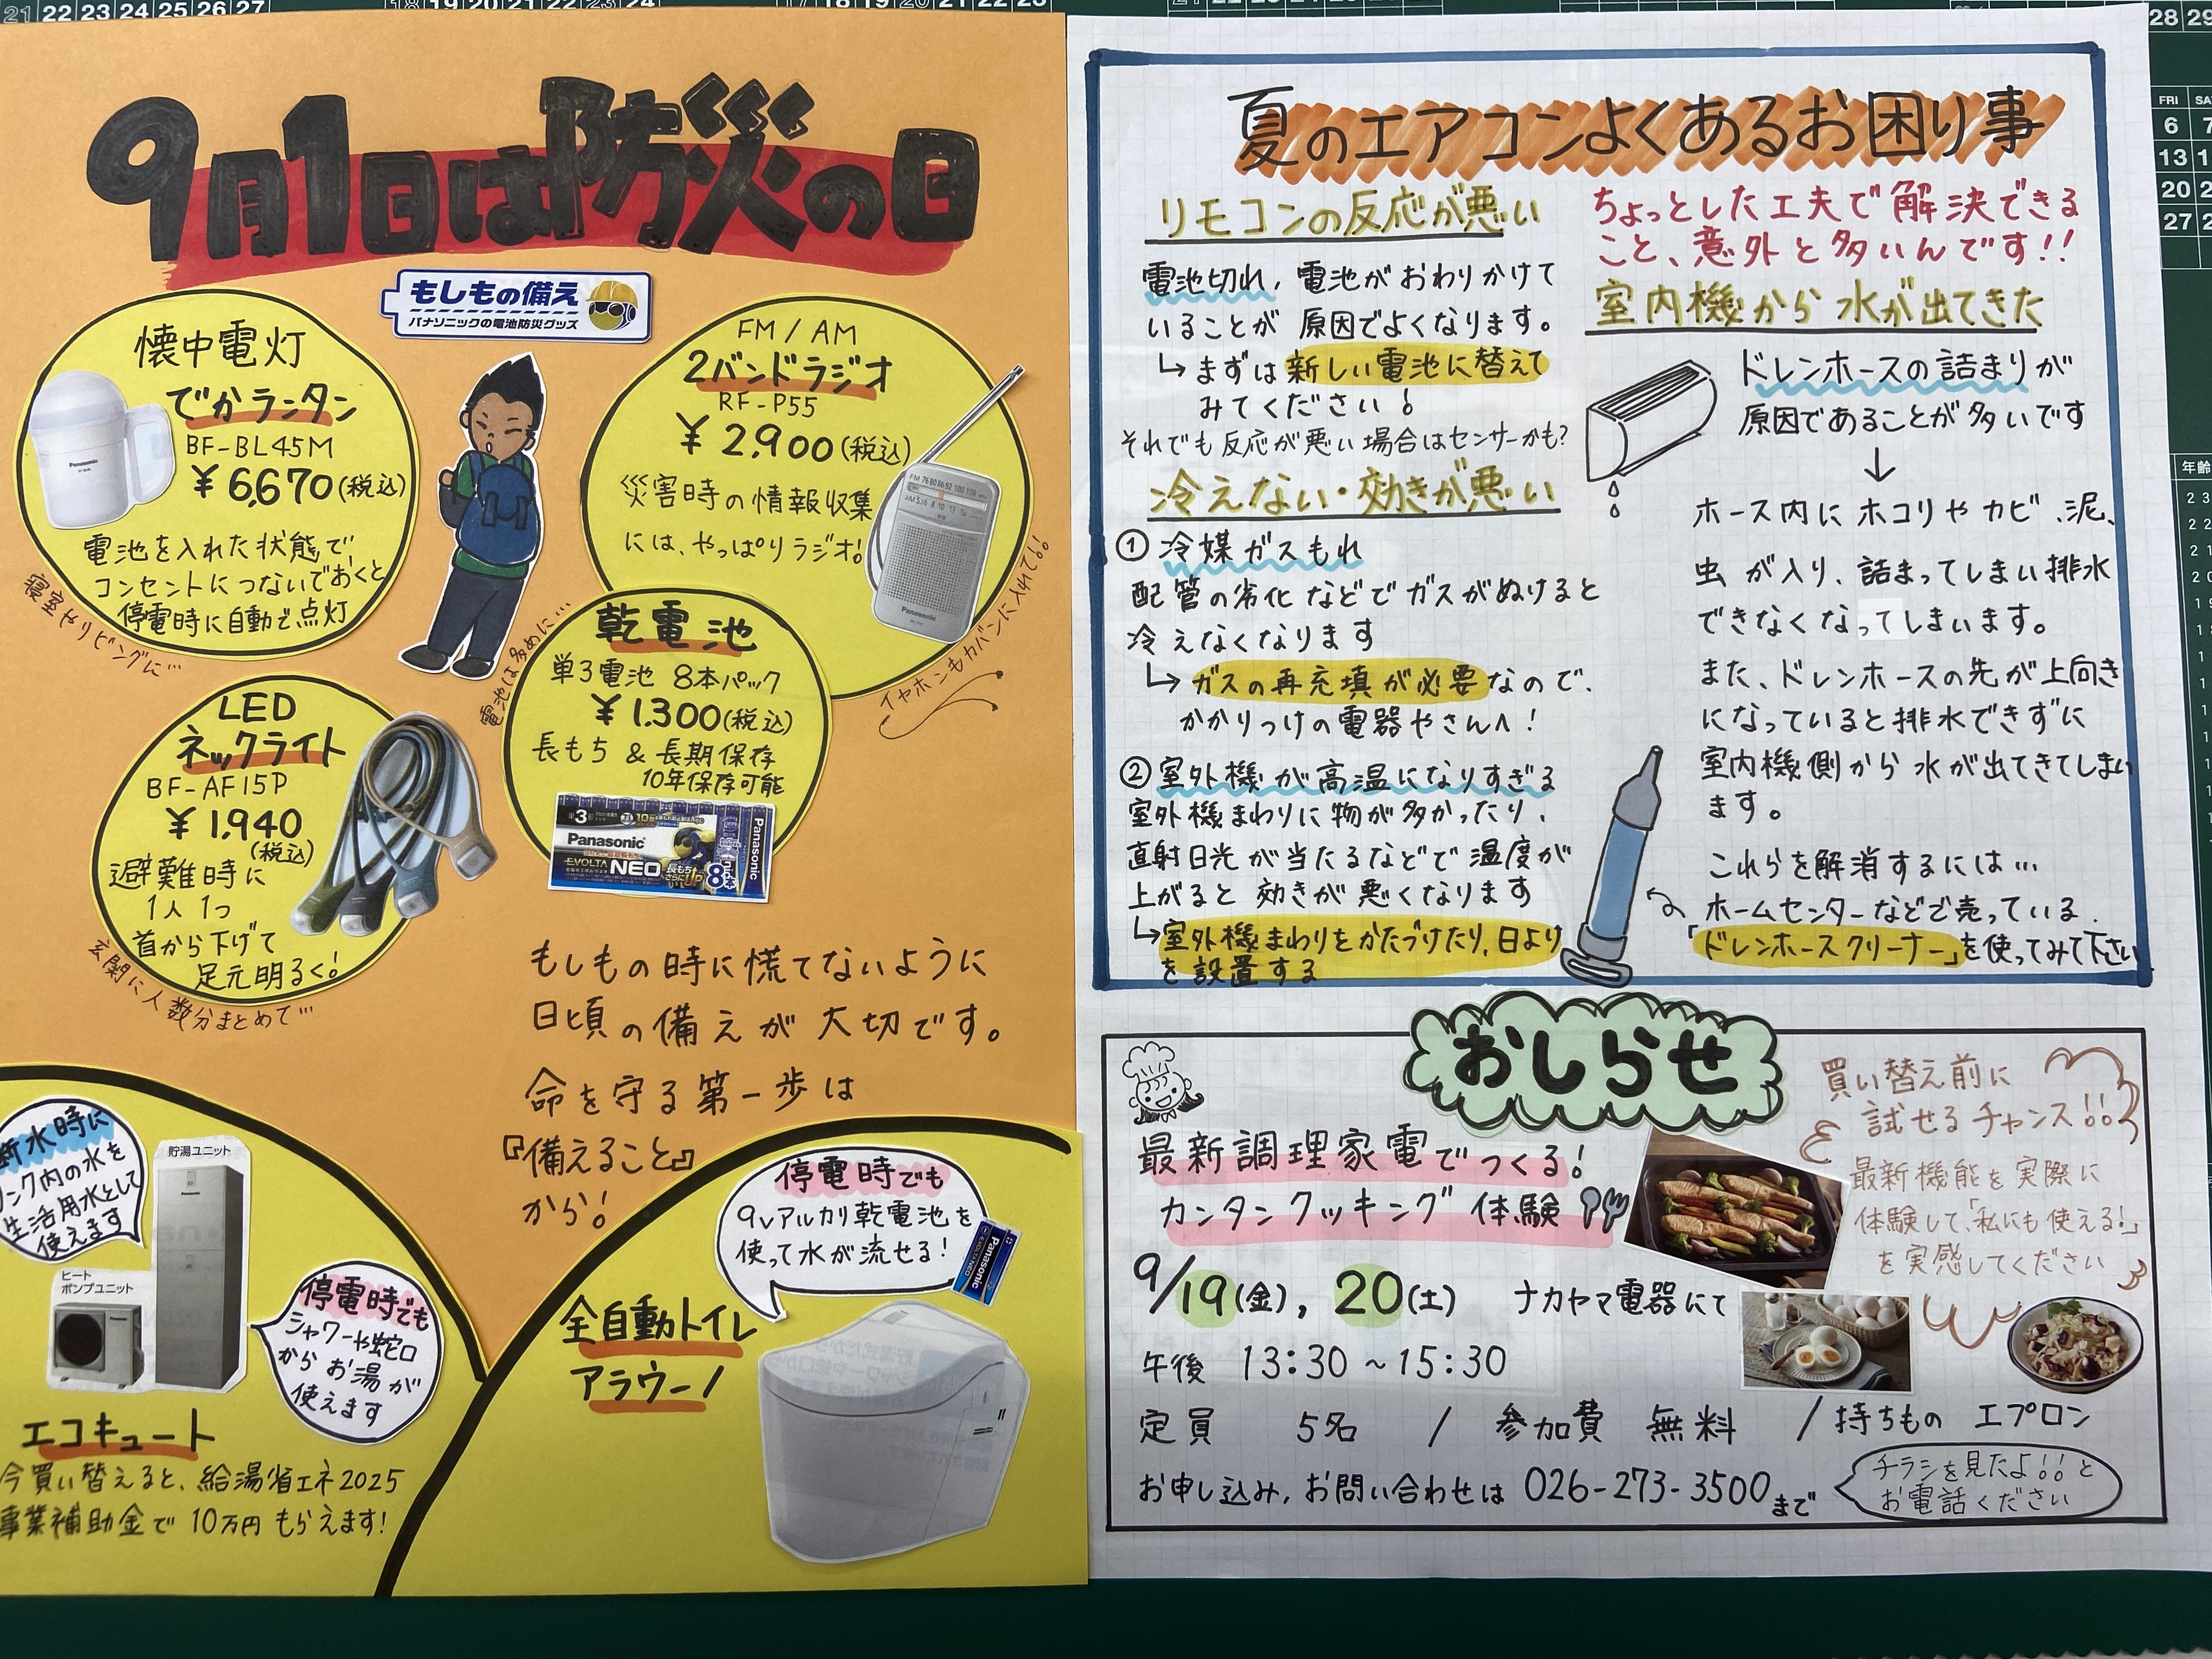 9月1日は防災の日
もしもの備え
パナソニックの電池防災グッズ
懐中電灯
でかランタン
BF-BL45M
¥6,670(税込)
電池を入れた状態で
コンセントにつないでおくと
停電時に自動で点灯
寝室やリビングに…
Panasonic
FM/AM
2バンドラジオ
RF-P55
¥2,900(税込)
災害時の情報収集
には、やっぱりラジオ!
イヤホンもカバンに入れて!!
Panasonic
乾電池
単3電池 8本パック
¥1,300(税込)
長もち & 長期保存
10年保存可能
電池は多めに…
単3形
Panasonic
EVOLTA
NEO
8本
Panasonic
LED
ネックライト
BF-AF15P
¥1,940
(税込)
避難時に
1人1つ
首から下げて
足元明るく!
玄関に人数分まとめて…
もしもの時に慌てないように
日頃の備えが大切です。
命を守る第一歩は
『備えること』
から!
断水時に
タンク内の水を
生活用水として
使えます
貯湯ユニット
ヒート
ポンプユニット
停電時でも
シャワーや蛇口
からお湯が
使えます
エコキュート
今買い替えると、給湯省エネ2025
事業補助金で10万円もらえます!
停電時でも
9vアルカリ乾電池を
使って水が流せる!
Panasonic
EVOLTA NEO
全自動トイレ
アラウーノ
夏のエアコンよくあるお困り事
ちょっとした工夫で解決できる
こと、意外と多いんです!!
リモコンの反応が悪い
電池切れ、電池がおわりかけて
いることが原因でよくなります。
↳まずは新しい電池に替えて
みてください!
それでも反応が悪い場合はセンサーかも?
冷えない・効きが悪い
①冷媒ガスもれ
配管の劣化などでガスがぬけると
冷えなくなります
↳ガスの再充填が必要なので、
かかりつけの電器やさんへ!
②室外機が高温になりすぎる
室外機まわりに物が多かったり、
直射日光が当たるなどで温度が
上がると効きが悪くなります
↳室外機まわりをかたづけたり、日よけ
を設置する
室内機から水が出てきた
ドレンホースの詰まりが
原因であることが多いです
↓
ホース内にホコリやカビ、泥、
虫が入り、詰まってしまい排水
できなくなってしまいます。
また、ドレンホースの先が上向き
になっていると排水できずに
室内機側から水が出てきてしまい
ます。
これらを解消するには…
ホームセンターなどで売っている
「ドレンホースクリーナー」を使ってみて下さい
おしらせ
最新調理家電でつくる!
カンタンクッキング体験
買い替え前に
試せるチャンス!!
最新機能を実際に
体験して、「私にも使える!」
を実感してください
9/19(金), 20(土) ナカヤマ電器にて
午後 13:30~15:30
定員 5名 / 参加費 無料 / 持ちもの エプロン
お申し込み、お問い合わせは 026-273-3500まで
チラシを見たよ!!と
お電話ください